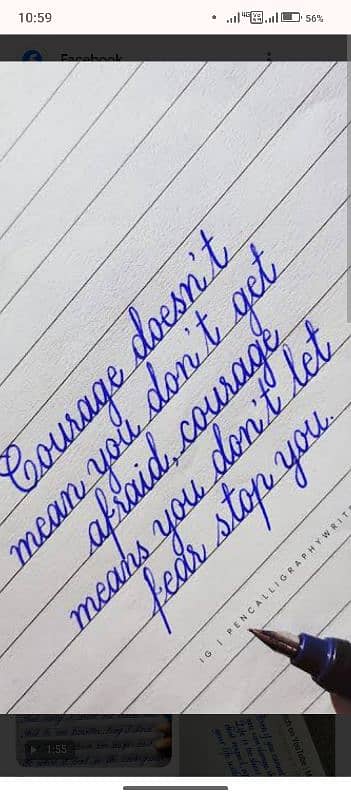 10:59
4G
56%
Facebook
Courage doesn't
mean you don't get
afraid, courage
means you don't let
fear stop you.
IG | PENCALLIGRAPHYWRIT
1:55